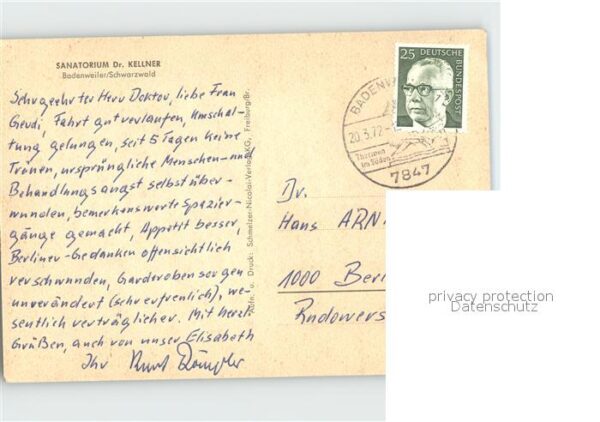 SANATORIUM Dr. KELLNER
Badenweiler/Schwarzwald
Sehr geehrter Herr Doktor, liebe Frau
Gerdi, Fahrt gut verlaufen, Umschal-
tung gelungen, seit 5 Tagen keine
Tränen, ursprüngliche Menschen- und
Behandlungsangst selbst über-
wunden, bemerkenswerte Spazier-
gänge gemacht, Appetit besser,
Berliner-Gedanken offensichtlich
verschwunden, Garderobensorgen
unverändert (sehr erfreulich), we-
sentlich verträglicher. Mit herzl.
Grüßen, auch von unser Elisabeth
Ihr Kurt
Aufn. u. Druck: Schmelzer-Nicolai-Verlag KG, Freiburg/Br.
25 DEUTSCHE
BUNDESPOST
BADENW
20.3.72
Thermen
im Süden
7847
Dr.
Hans ARN
1000 Berl
Rudowers
privacy protection
Datenschutz